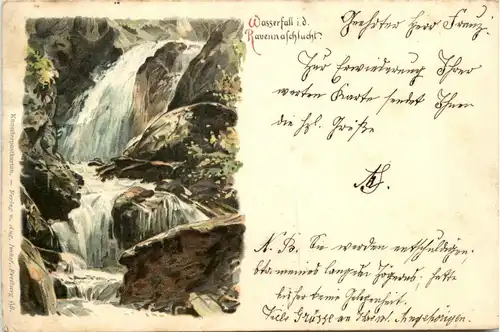 Wasserfall i. d.
Ravennaschlucht.
Geehrter Herr Franz.
Zur Erwiederung Ihrer
werten Karte sendet Ihnen
die hzl. Grüße
N. B. Sie werden entschuldigen,
meines langen Zögerns; hatte
bisher keine Gelegenheit.
Viele Grüße an Ihre Angehörigen.
Künstlerpostkarten. — Verlag v. Aug. Freiburg i/B.